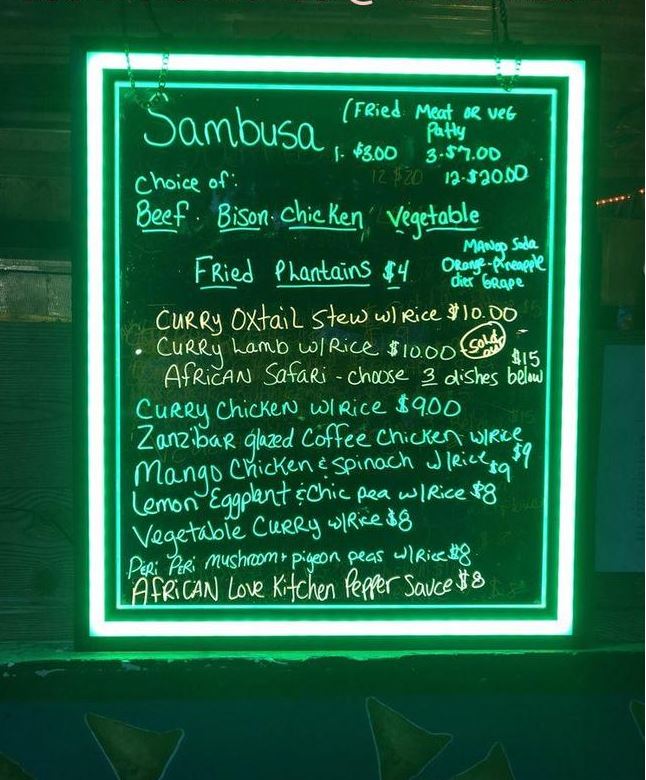 Sambusa (Fried Meat OR Veg
Patty
1- $3.00 3-$7.00
12-$20.00
12 $20
Choice of:
Beef. Bison. Chicken Vegetable
Mango Soda
Orange-Pineapple
Diet Grape
Fried Phantains $4
Curry Oxtail Stew w/ Rice $10.00
• Curry Lamb w/ Rice $10.00 Sold out
$15
African Safari - choose 3 dishes below
Curry Chicken w/ Rice $9.00
Zanzibar glazed Coffee Chicken w/Rice $9
Mango Chicken & Spinach w/Rice $9
Lemon Eggplant & Chic pea w/Rice $8
Vegetable Curry w/Rice $8
Peri Peri mushroom + pigeon peas w/Rice $8
African Love Kitchen Pepper Sauce $8